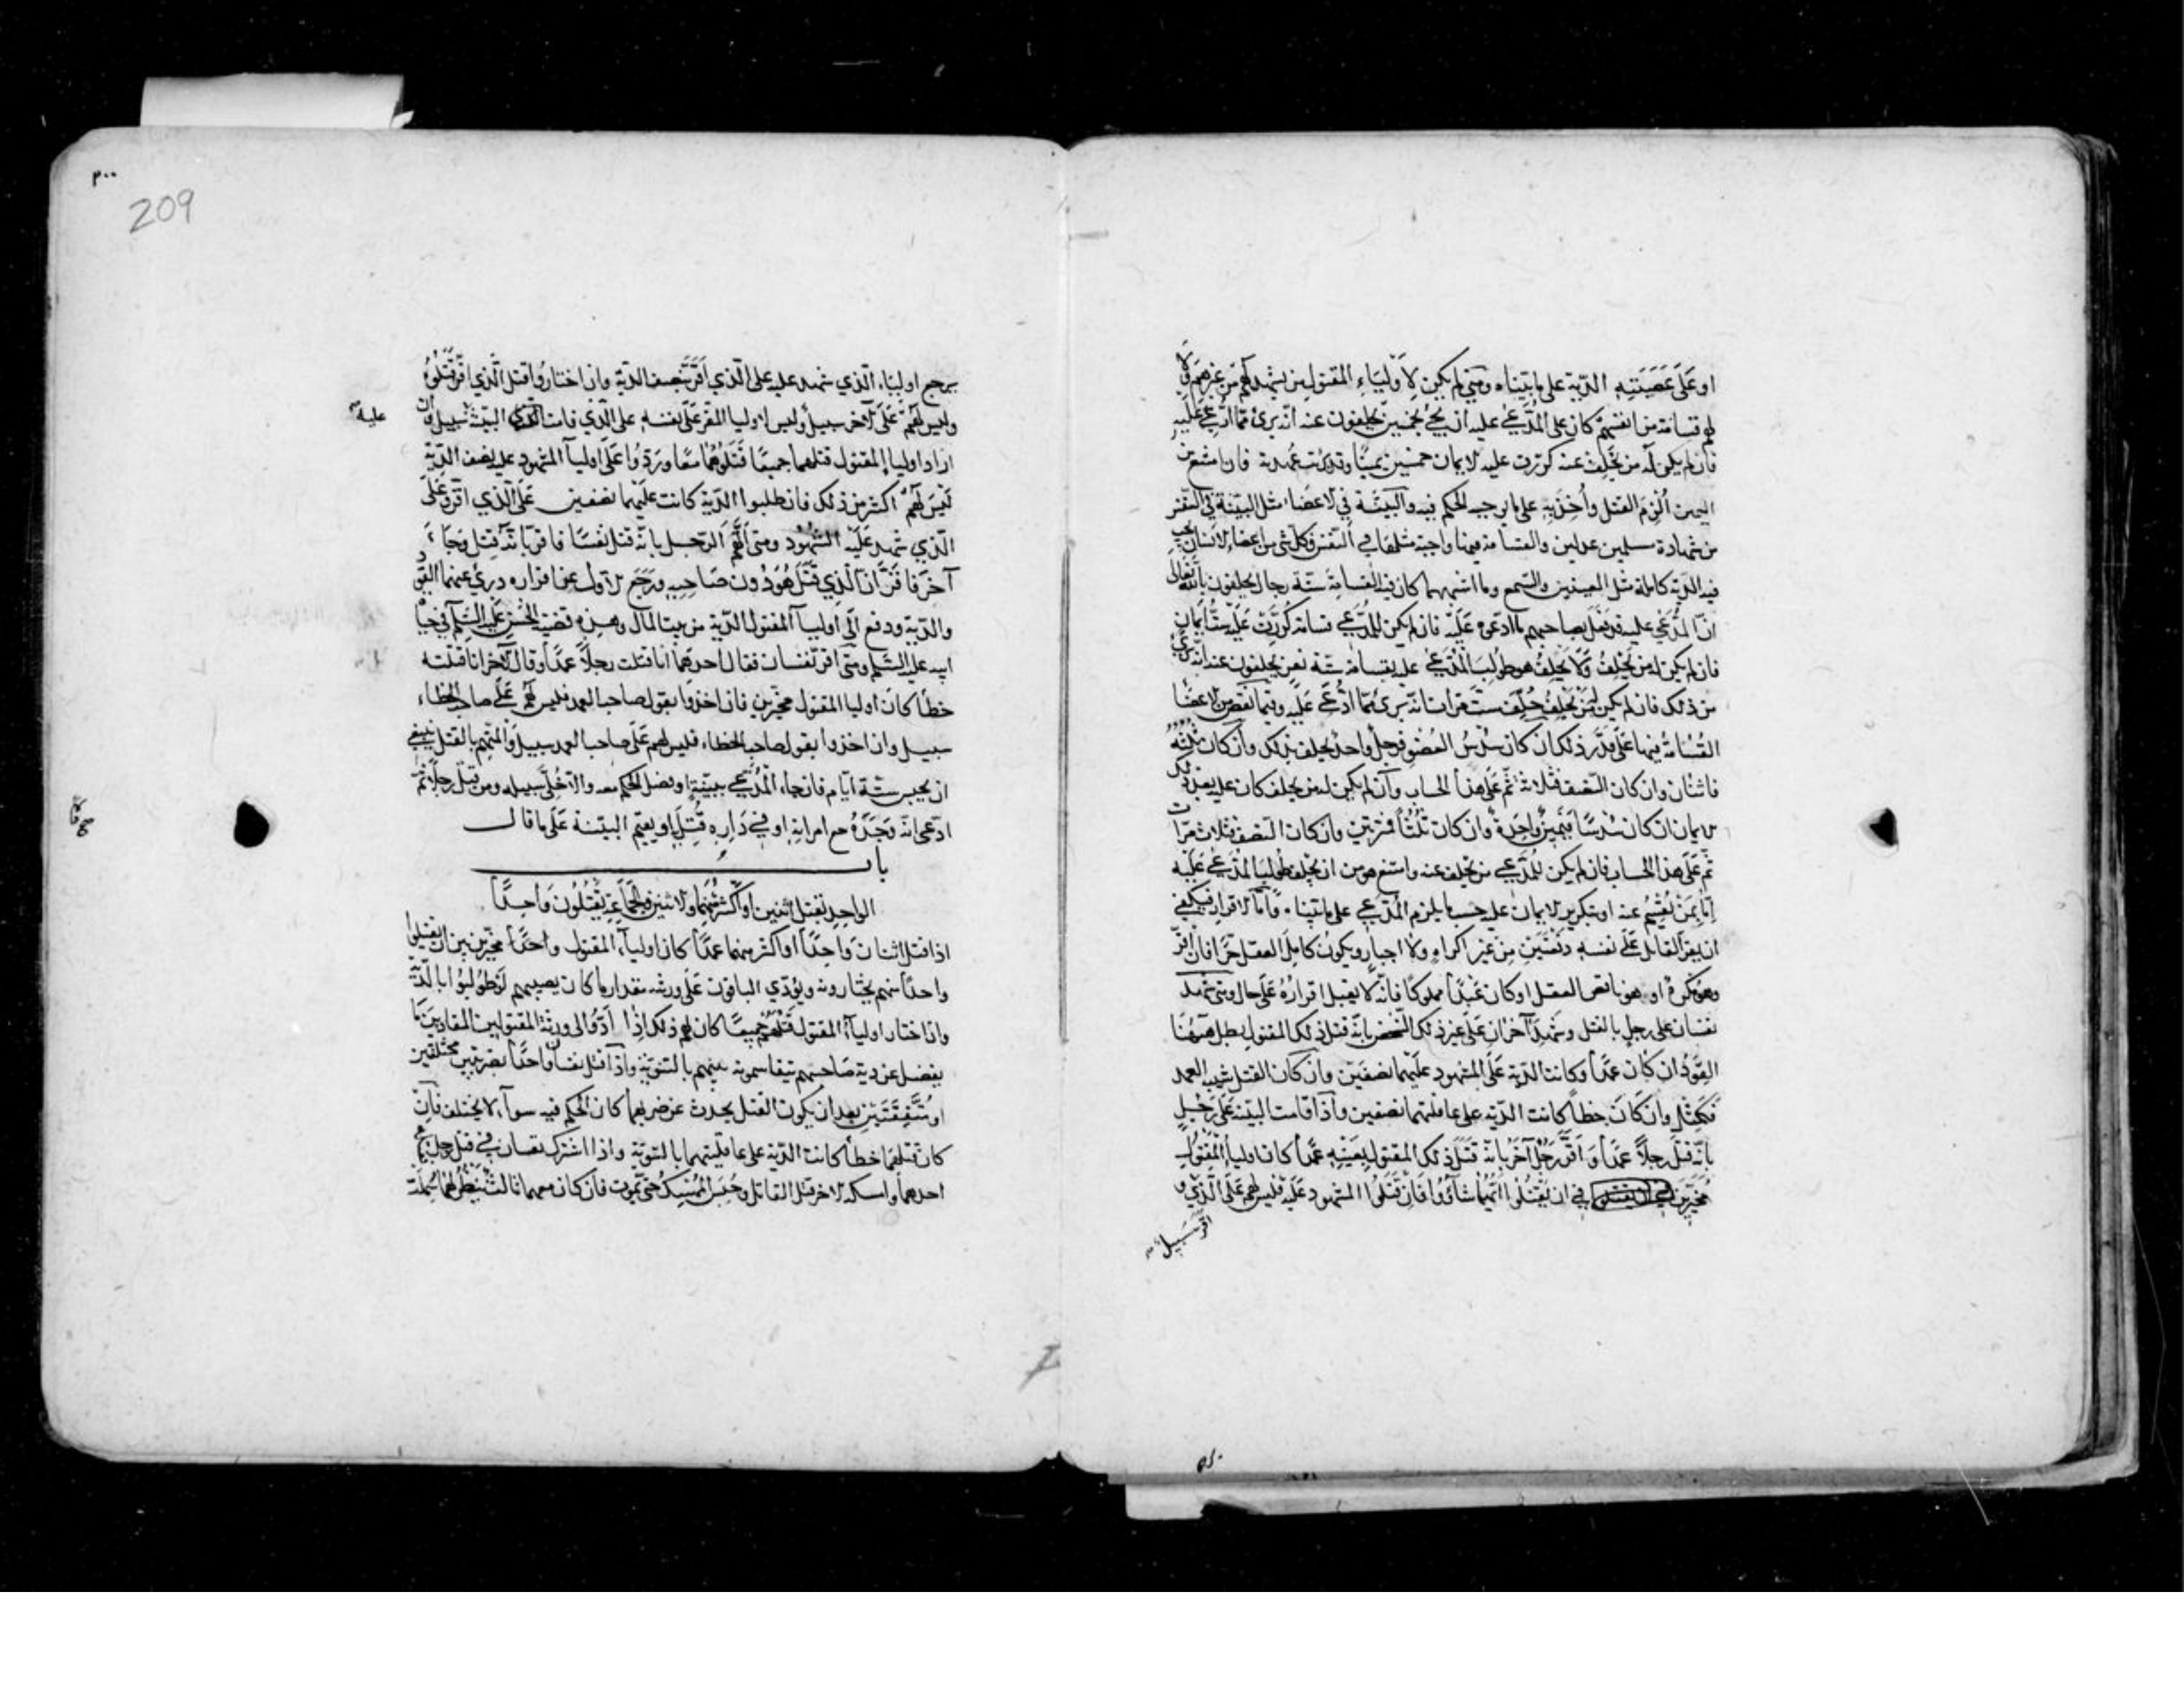 او عَلَى عَصَبَتِهِ الدّية على ما بيّناه ومتى لم يكن لأولياء المقتول من يشهد لهم من غيرهم ولا
لهم قسامة من انفسهم كان على المُدّعى عليه ان يجئ بخمسين يحلفون عنه انّه برئ ممّا ادُّعِى عَلَيهِ
فان لم يكن له من يحلف عنه كررت عليه الايمان خمسين يمينًا وقد برئت عهدته فان امتنع من
اليمين اُلزم القتل واُخِذ به على ما يوجبه الحكم فيه والبيّنة في الاعضاء مثل البيّنة في النّفس
من شهادة مسلمين عدلين والقسامة فيها واجبة مثلها في النّفس وكلّ شئ من اعضاء الانسان يجب
فيه الدّية كاملة مثل العينين والسّمع وما اشبههما كان فيه القسامة ستّة رجال يحلفون بالله تعالى
انّ المدّعى عليه قد فعل بصاحبهم ما ادعوه عَلَيه فان لم يكن للمدّعي قسامة كُرّرت عليه ستُّ اَيمان
فان لم يكن له من يحلِفُ ولا يحلِفُ هو طولِبَ المُدّعى عليه بقسامة ستّة نفر يحلفون عنه انّه برئ
من ذلك فان لم يكن له من يحلِف حُلِّف ستّ مرات انّه برئ ممّا ادُّعِى عَلَيه وفيما نقص من الاعضا
القَسَامة فيها عَلَى قَدر ذلك ان كان سُدسُ العُضو فرجل واحدٌ يحلف بذلك وان كان ثُلثَه
فاثنان وان كان النّصف فثلاثة ثمّ عَلَى هذا الحساب وان لم يكن له من يحلف كان عليه بعدد ذلك
الايمان ان كان سُدسًا فيمين واحِدة وان كان ثُلُثًا فمرّتين وان كان النّصف فثلاث مرّات
ثُمّ عَلَى هذا الحساب فان لم يكن للمُدّعي من يحلف عنه وامتنع هو من ان يحلف طولب المُدّعى عَلَيه
اِمّا بمن يُقسِم عنه او بتكرير الايمان عليه حسب ما يلزم المُدّعي على ما بيّناه وَامّا الاقرار فيكفي
ان يقرّ القاتل على نفسه دفعتين مِن غير اكراه ولا اجبار ويكون كامل العقل حرّا فان اقرّ
وهو مُكرَه او هو ناقص العقل او كان عَبْدًا مملوكًا فانّه لا يقبل اقرارُه عَلَى حال ومتى شهد
نفسان على رجل بالقتل وشهِدَ آخران عَلَى غير ذلك الشّخص بانّه قتل ذلك المقتول بطل ههُنا
القَوَدُ ان كان عَمدًا وكانت الدّية عَلَى المشهود علَيْهما نصفَين وان كان القتل شبيه العمد
فَكَمِثلِه وان كَانَ خطأً كانت الدّية على عاقلتهما نصفين واذا قامت البيّنة على رَجُلٍ
بانّه قتل رجلًا عمدًا وَاَقرَّ رجُل آخَرُ بانه قتَلَ ذلك المقتول بعينِه عمدًا كان اوليا المقتول
مُخيّرين في ان يَقتُلُوا ايّهما شاؤُوا فان قتلُوا المشهود عَلَيه فليس لهم عَلَى الّذي
اقرّ سَبِيل
٢٠٠
209
يرجع اولياء الّذي شهد عليه على الّذي اَقرَّ بنصف الدّية وان اختارُوا قتل الّذي اقرّ قتَلُوهُ
وليس لَهُم عَلَى الآخر سبيل وليس لاوليا المقر عَلَى نفسه على الّذي قامت البيّنة سبيل وان
عليه
اراد اوليا المقتول قتلهما جميعًا قَتَلُوهُما معًا ورَدّوا عَلَى اوليآ المشهود عليه نصف الدّية
لَيسَ لَهُم اكثر من ذلك فان طلبوا الدّية كانت علَيْهما نصفين عَلَى الّذي اقرّ وعَلَى
الّذي شهد عَلَيه الشّهُود ومتى اتُّهِم الرّجل بانّه قتل نفسًا فاقرّ بانّه قَتل وجَاءَ
آخر فاقرّ انّ الّذي قَتل هُوَ دُون صَاحِبِه ورَجَع الاول عن اقراره درئ عنهما القَود
والدّية ودفع اِلَى اوليآ المقتول الدّية من بيت المال وهذه قضيّة الحَسَن عليه السّلم في حياة
ابيه عليه السّلم ومتى اقر نفسان فقال احدهما انا قتلت رجلًا عمدًا وقال الآخر انا قتلته
خطأ كان اوليا المقتول مخيّرين فان اخذوا بقول صاحب العمد فليس لهم عَلَى صاحب الخطاء
سبيل وان اخذوا بقول صاحب الخطاء فليس لهم عَلَى صاحب العمد سبيل والمتّهم بالقتل ينبغي
ان يحبس ستّة ايّام فان جاء المُدّعي ببيّنة او فصل الحكم معه والّا خُلّى سبيله ومن قتل رجلًا ثمّ
ادّعى انّه وَجَدَهُ مع امراته او في دَارِه قُتِلَ به او يقيم البيّنة عَلَى ما قال
باب
الواحد يقتل اثنين اَو اكثر منهما والاثنين والجماعة يقتُلُون واحِدًا
اذا قتل اثنان وَاحِدًا او اكثر منهما عمدًا كان اوليآء المقتول مخيّرين بين ان يقتلوا
واحدًا منهم يختارونه ويؤدّي الباقون عَلَى ورثته مقدار ما كان يصيبهم لَو طُولبُوا بالدّية
وان اختار اوليآء المقتول قَتْلَهُم جميعًا كان لهم ذلك اِذا اَدّوا الى ورثة المقتولين المقادين ما
يفضل عن دية صَاحبهم يتقاسمونه بينهم بالسّويّة واذا قتل نفسان واحدًا بضربتين مختلفتين
او مُتّفِقتين بعد ان يكون القتل يحدث عن ضربهما كان الحكم فيه سوآء لا يختلف فان
كان قتلهما خطأ كانت الدّية على عاقلتيهما بالسّويّة واذا اشترك نفسان في قتل رجل فقتل
احدهما وامسكه الآخر قتل القاتل وحُبِسَ المُمسِك حتّى يَموت فان كان معهما ثالث ينظر لهما سُملت